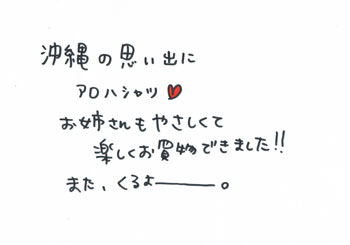 沖縄の思い出に
アロハシャツ
お姉さんもやさしくて
楽しくお買物できました!!
また、くるよー。